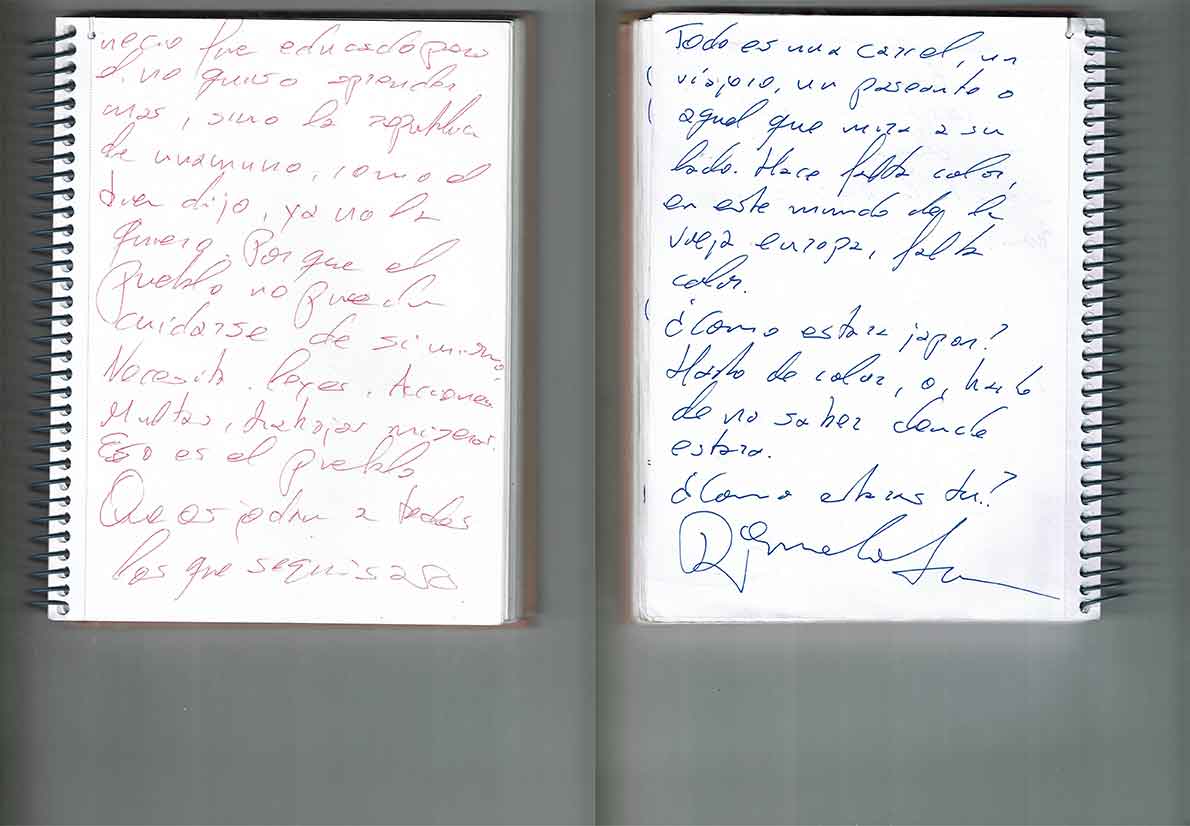 necio fue educado pero
el no quiso aprender
mas, sino la republica
de unamuno, como el
buen dijo, ya no la
quiero. Por que el
pueblo no puede
cuidarse de si mismo.
Necesita. leyes. Acciones.
Multas, trabajos miseros.
Eso es el pueblo
Que os jodan a todos
los que seguis aso
Todo es una carcel, un
viajero, un paseante o
aquel que mira a su
lado. Hace falta color,
en este mundo de la
vieja europa, falta
color.
¿Como estara japon?
Harto de color, o, harto
de no saber donde
estara.
¿Como estaras tu?